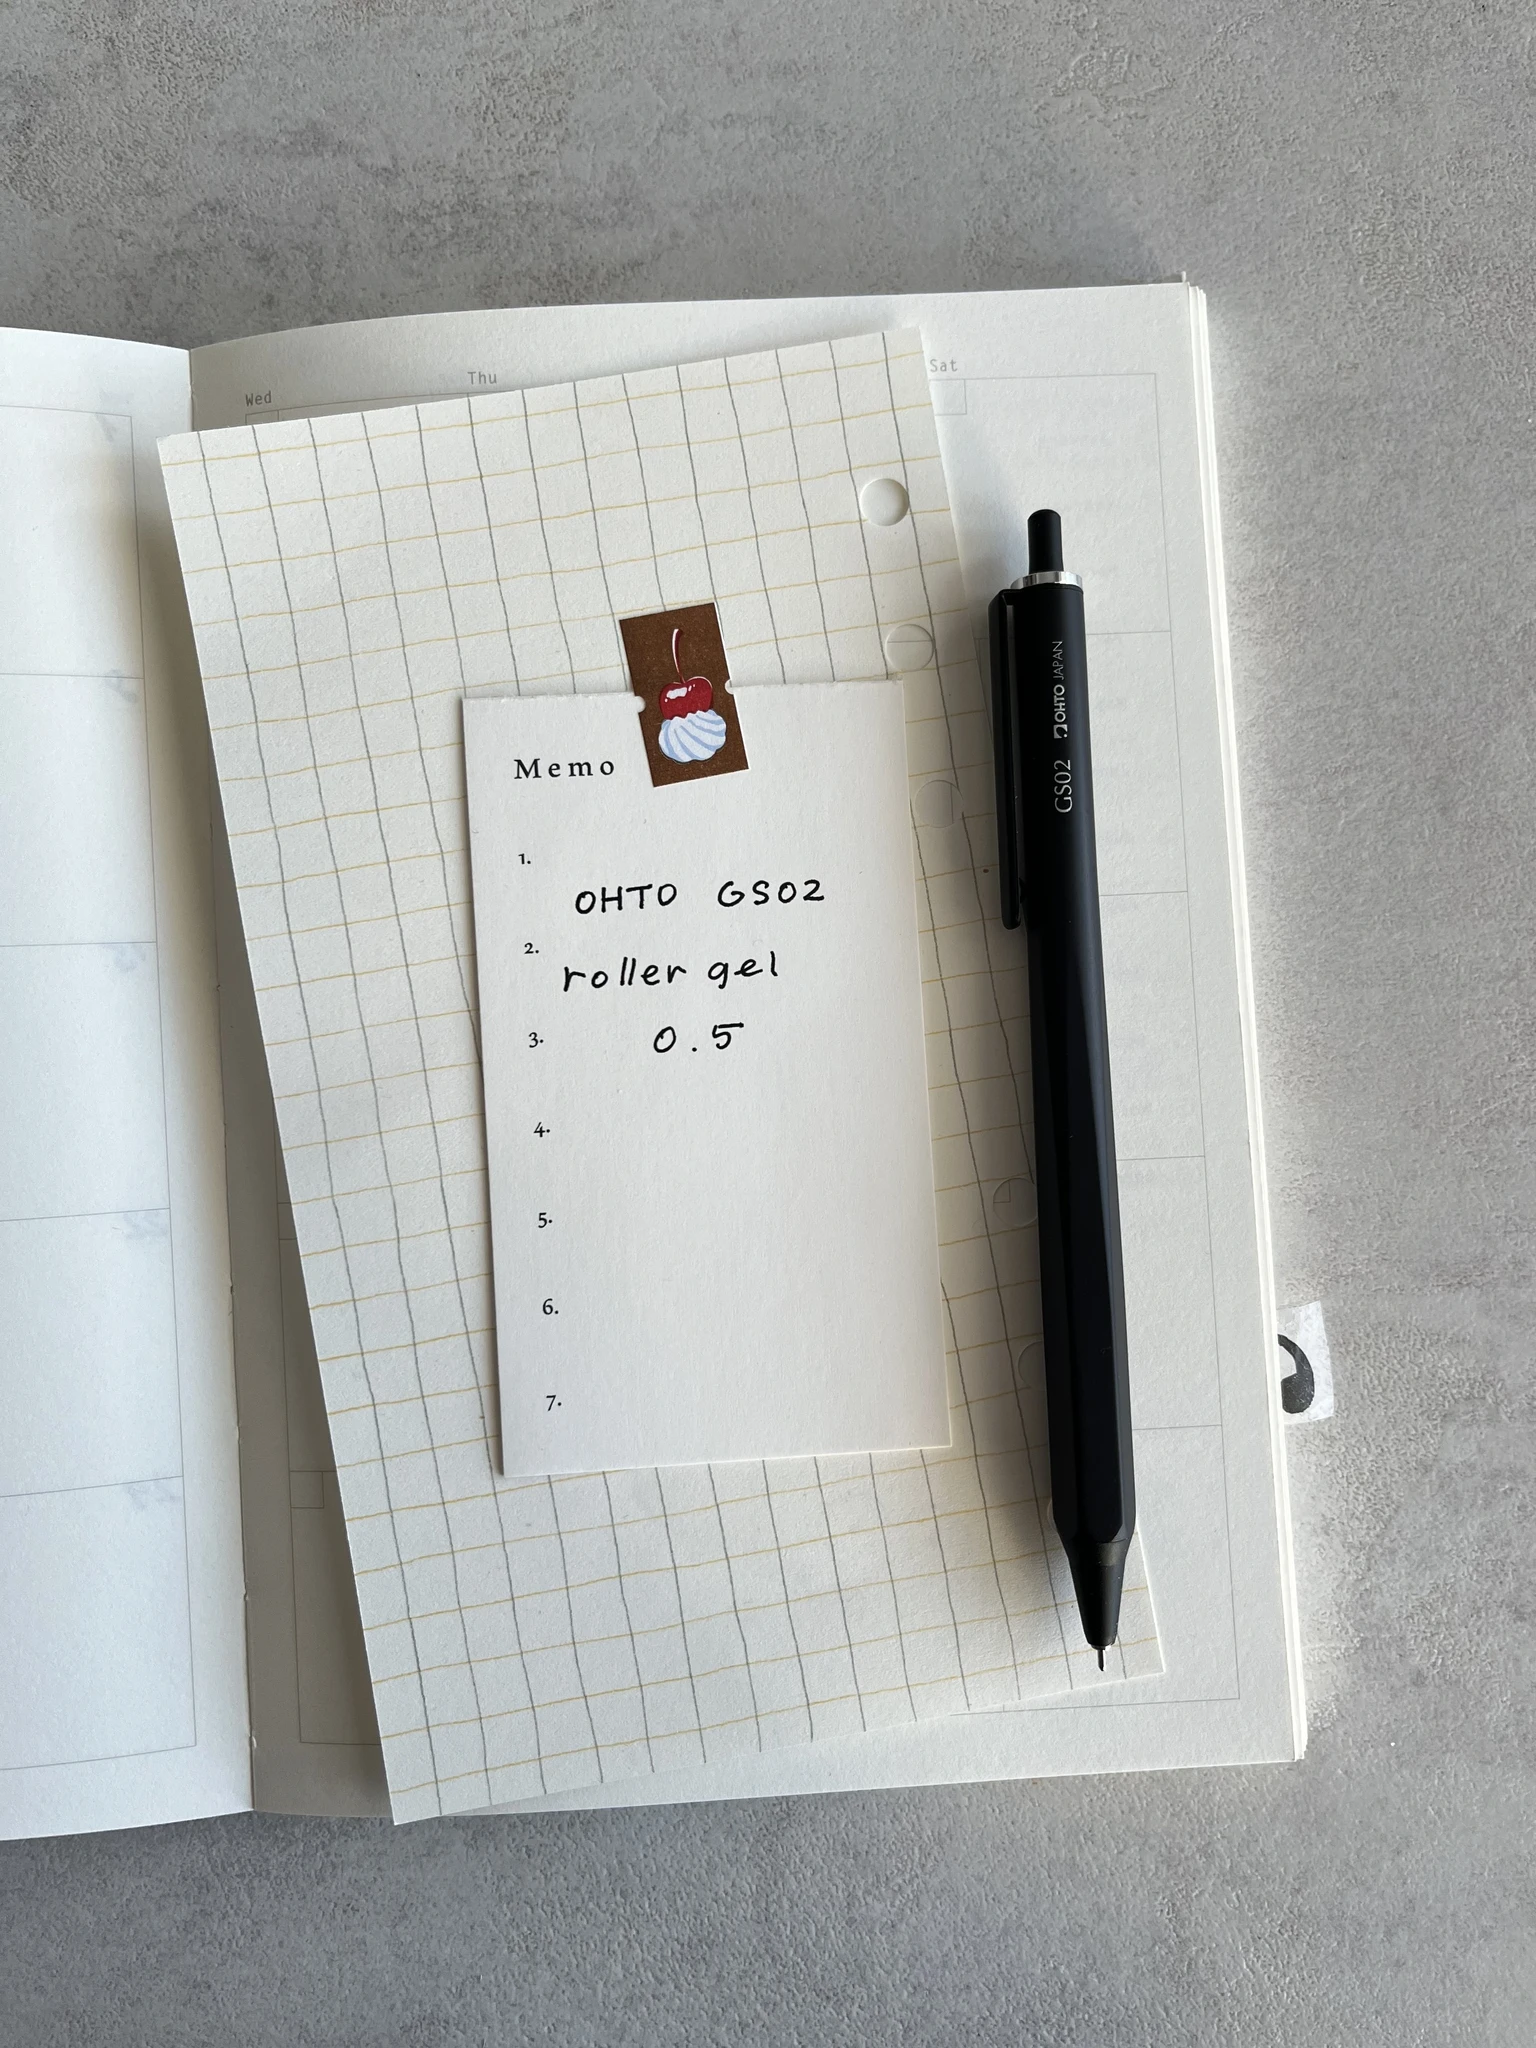 Wed
Thu
Sat
Memo
1.
OHTO GS02
2.
roller gel
3.
0.5
4.
5.
6.
7.
GS02 OHTO JAPAN